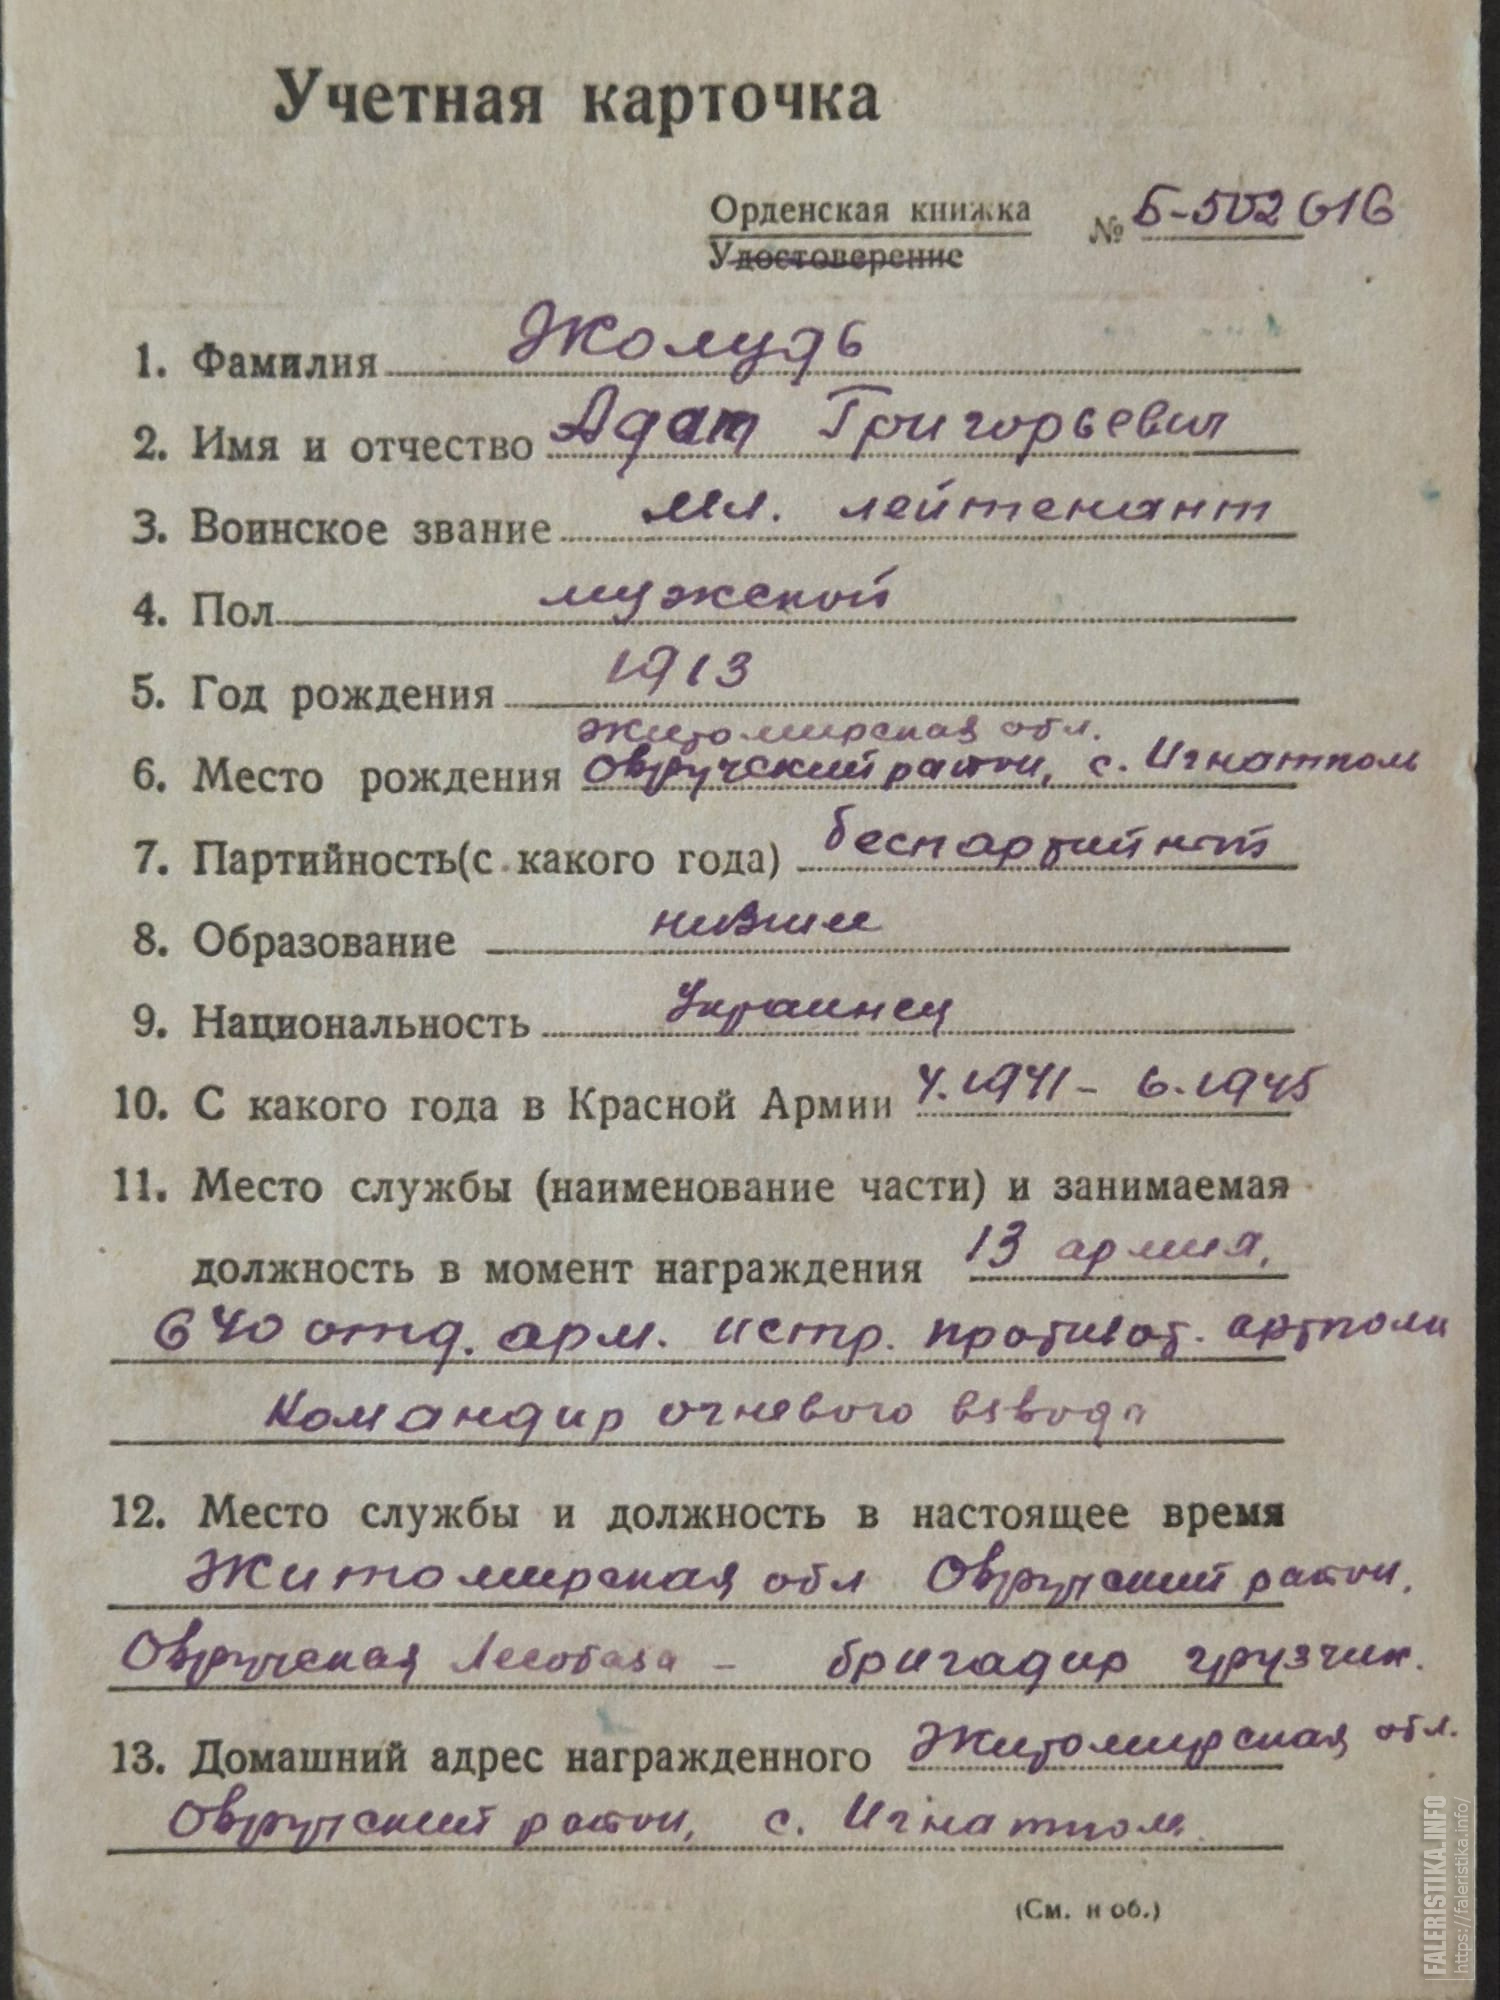 Учетная карточка
Орденская книжка
Удостоверение
№ Б-502616
1. Фамилия Жолудь
2. Имя и отчество Адам Григорьевич
3. Воинское звание мл. лейтенант
4. Пол мужской
5. Год рождения 1913
Житомирская обл.
6. Место рождения Овручский район, с. Игнатполь
7. Партийность(с какого года) беспартийный
8. Образование низшее
9. Национальность Украинец
10. С какого года в Красной Армии 7.1941 – 6.1945
11. Место службы (наименование части) и занимаемая
должность в момент награждения 13 армия,
640 отд. арм. истр. противот. артполк
Командир огневого взвода
12. Место службы и должность в настоящее время
Житомирская обл Овручский район,
Овручская Лесобаза – бригадир грузчик.
13. Домашний адрес награжденного Житомирская обл.
Овручский район, с. Игнатполь
(См. н об.)
FALERISTIKA.INFO
https://faleristika.info/